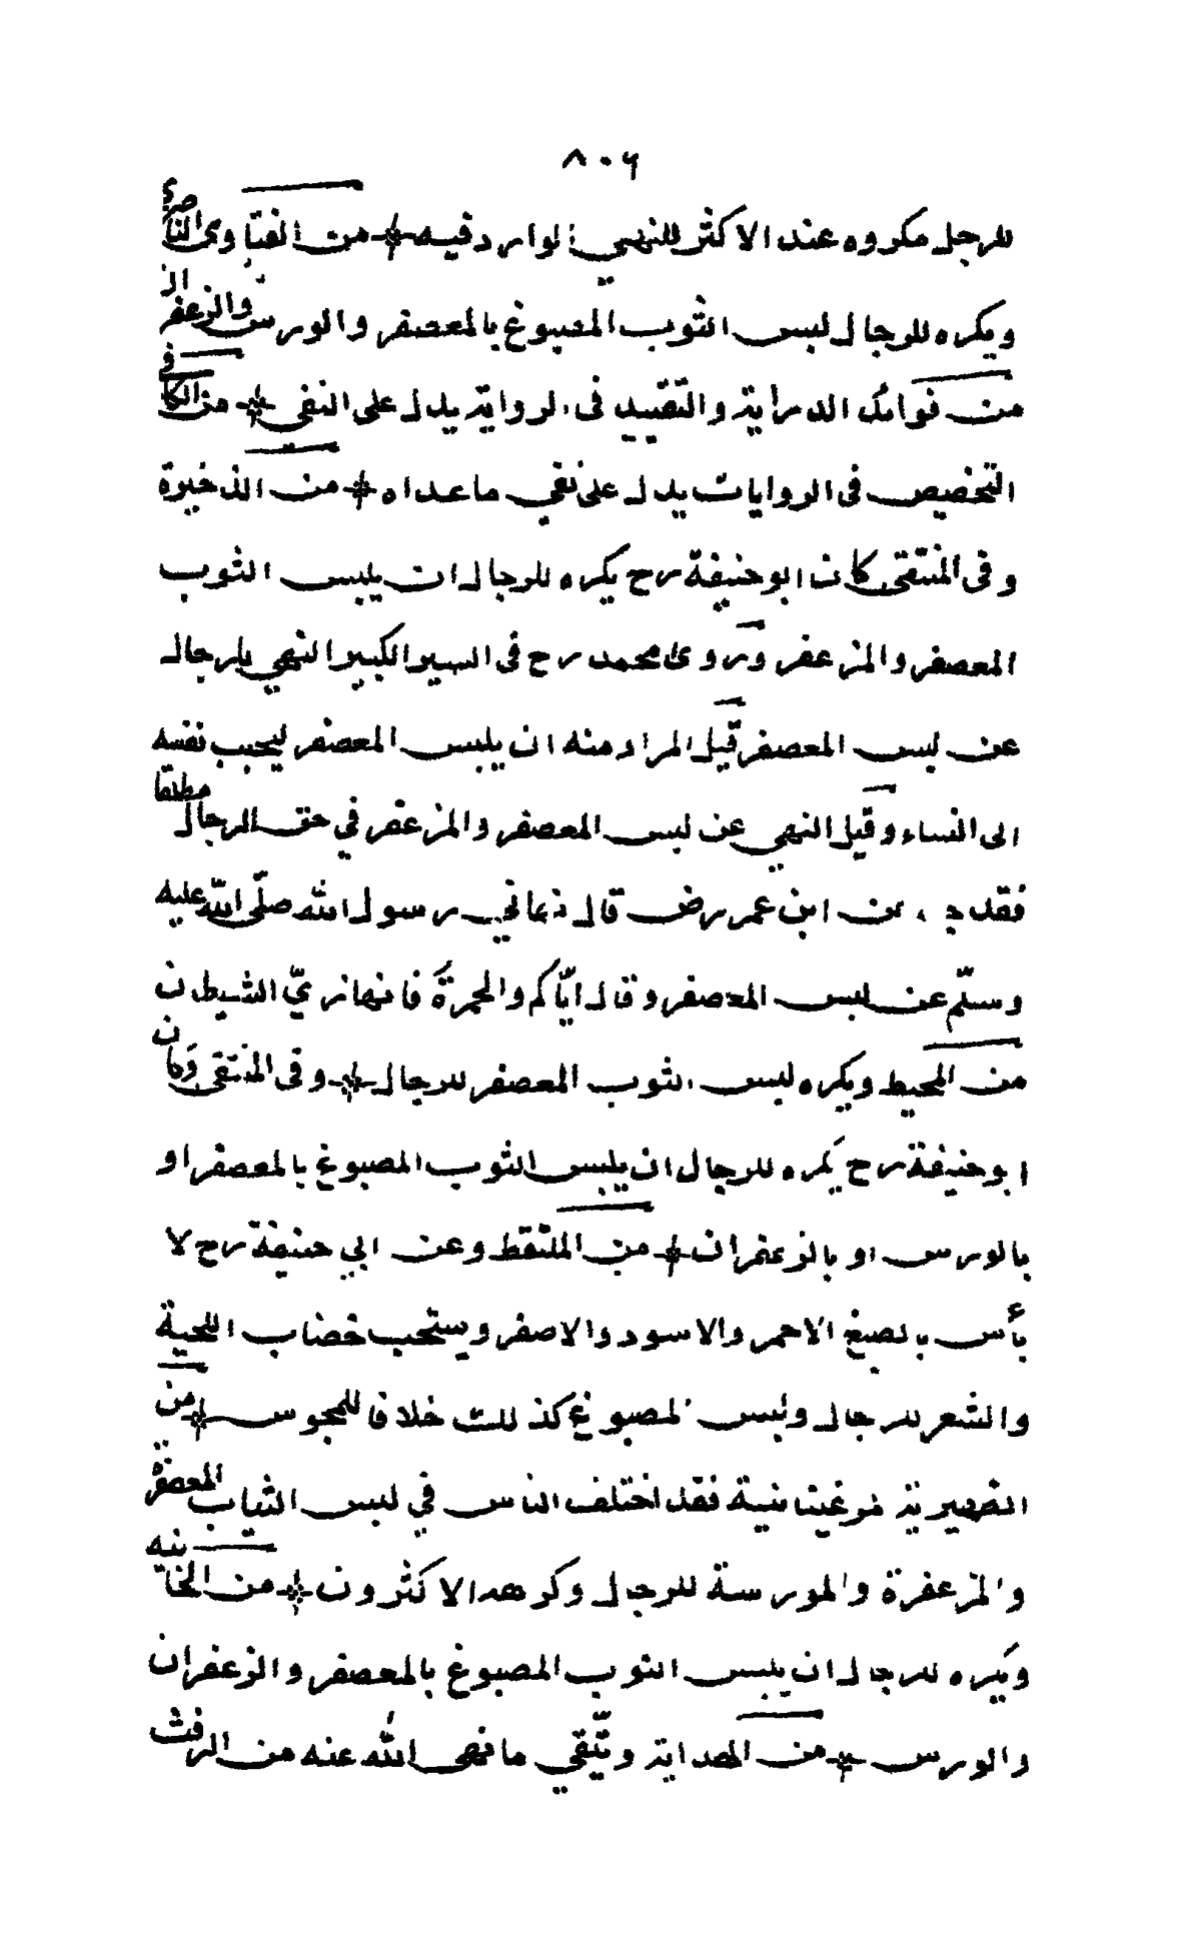 ٨٠٦
للرجل مكروه عند الاكثر للنهي الوارد فيه * من الفتاوى الناصري
ويكره للرجال لبس الثوب المصبوغ بالمعصفر والورس والزعفر
من فوائد الدراية والتقييد فى الرواية يدل على النفي * من الكافي
التخصيص فى الروايات يدل على نفي ما عداه * من الذخيرة
وفى المنتقى كان ابو حنيفة رح يكره للرجال ان يلبس الثوب
المعصفر والمزعفر وروى محمد رح فى السير الكبير النهي للرجال
عن لبس المعصفر قيل المراد منه ان يلبس المعصفر ليحبب نفسه
الى النساء وقيل النهي عن لبس المعصفر والمزعفر في حق الرجال مطلقا
فقد عن ابن عمر رض قال نهاني رسول الله صلّى الله عليه
وسلّم عن لبس المعصفر وقال ايّاكم والحمرة فانها زيّ الشيطن
من المحيط ويكره لبس الثوب المعصفر للرجال * وفى المنتقى وكان
ابو حنيفة رح يكره للرجال ان يلبس الثوب المصبوغ بالمعصفر او
بالورس او بالزعفران * من الملتقط وعن ابي حنيفة رح لا
بأس بالصبغ الاحمر والاسود والاصفر ويستحب خضاب اللحية
والشعر للرجال ولبس المصبوغ كذلك خلافا للمجوس * من
الظهيرية فقد اختلف الناس في لبس الثياب المعصفرة
والمزعفرة والمورسة للرجال وكرهه الاكثرون * من الخانية
ويكره للرجال ان يلبس الثوب المصبوغ بالمعصفر والزعفران
والورس * من الهداية ويتّقي ما نهى الله عنه من الرفث